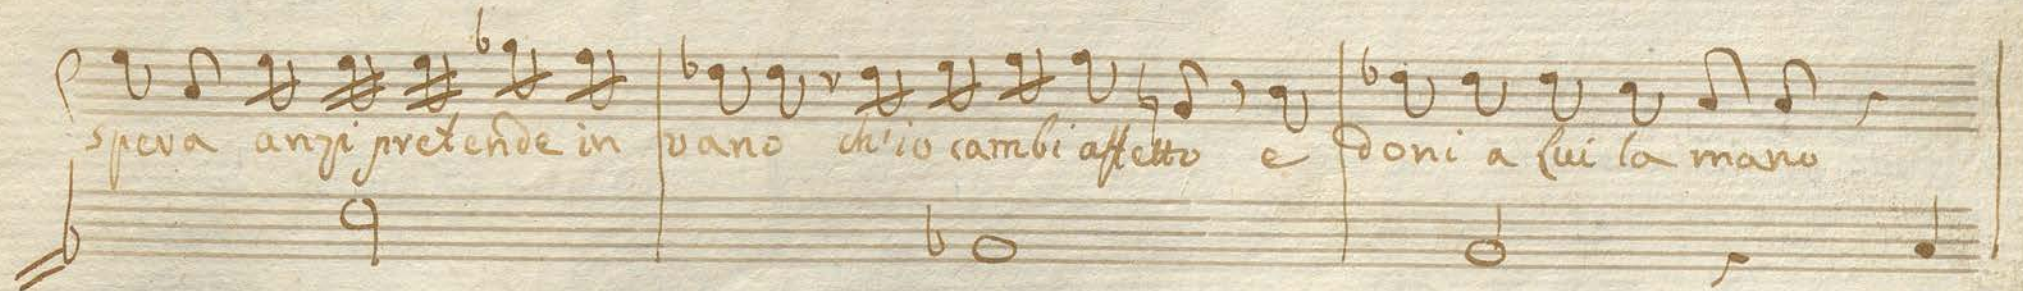 spera anzi pretende in vano ch'io cambi affetto e doni a lui la mano